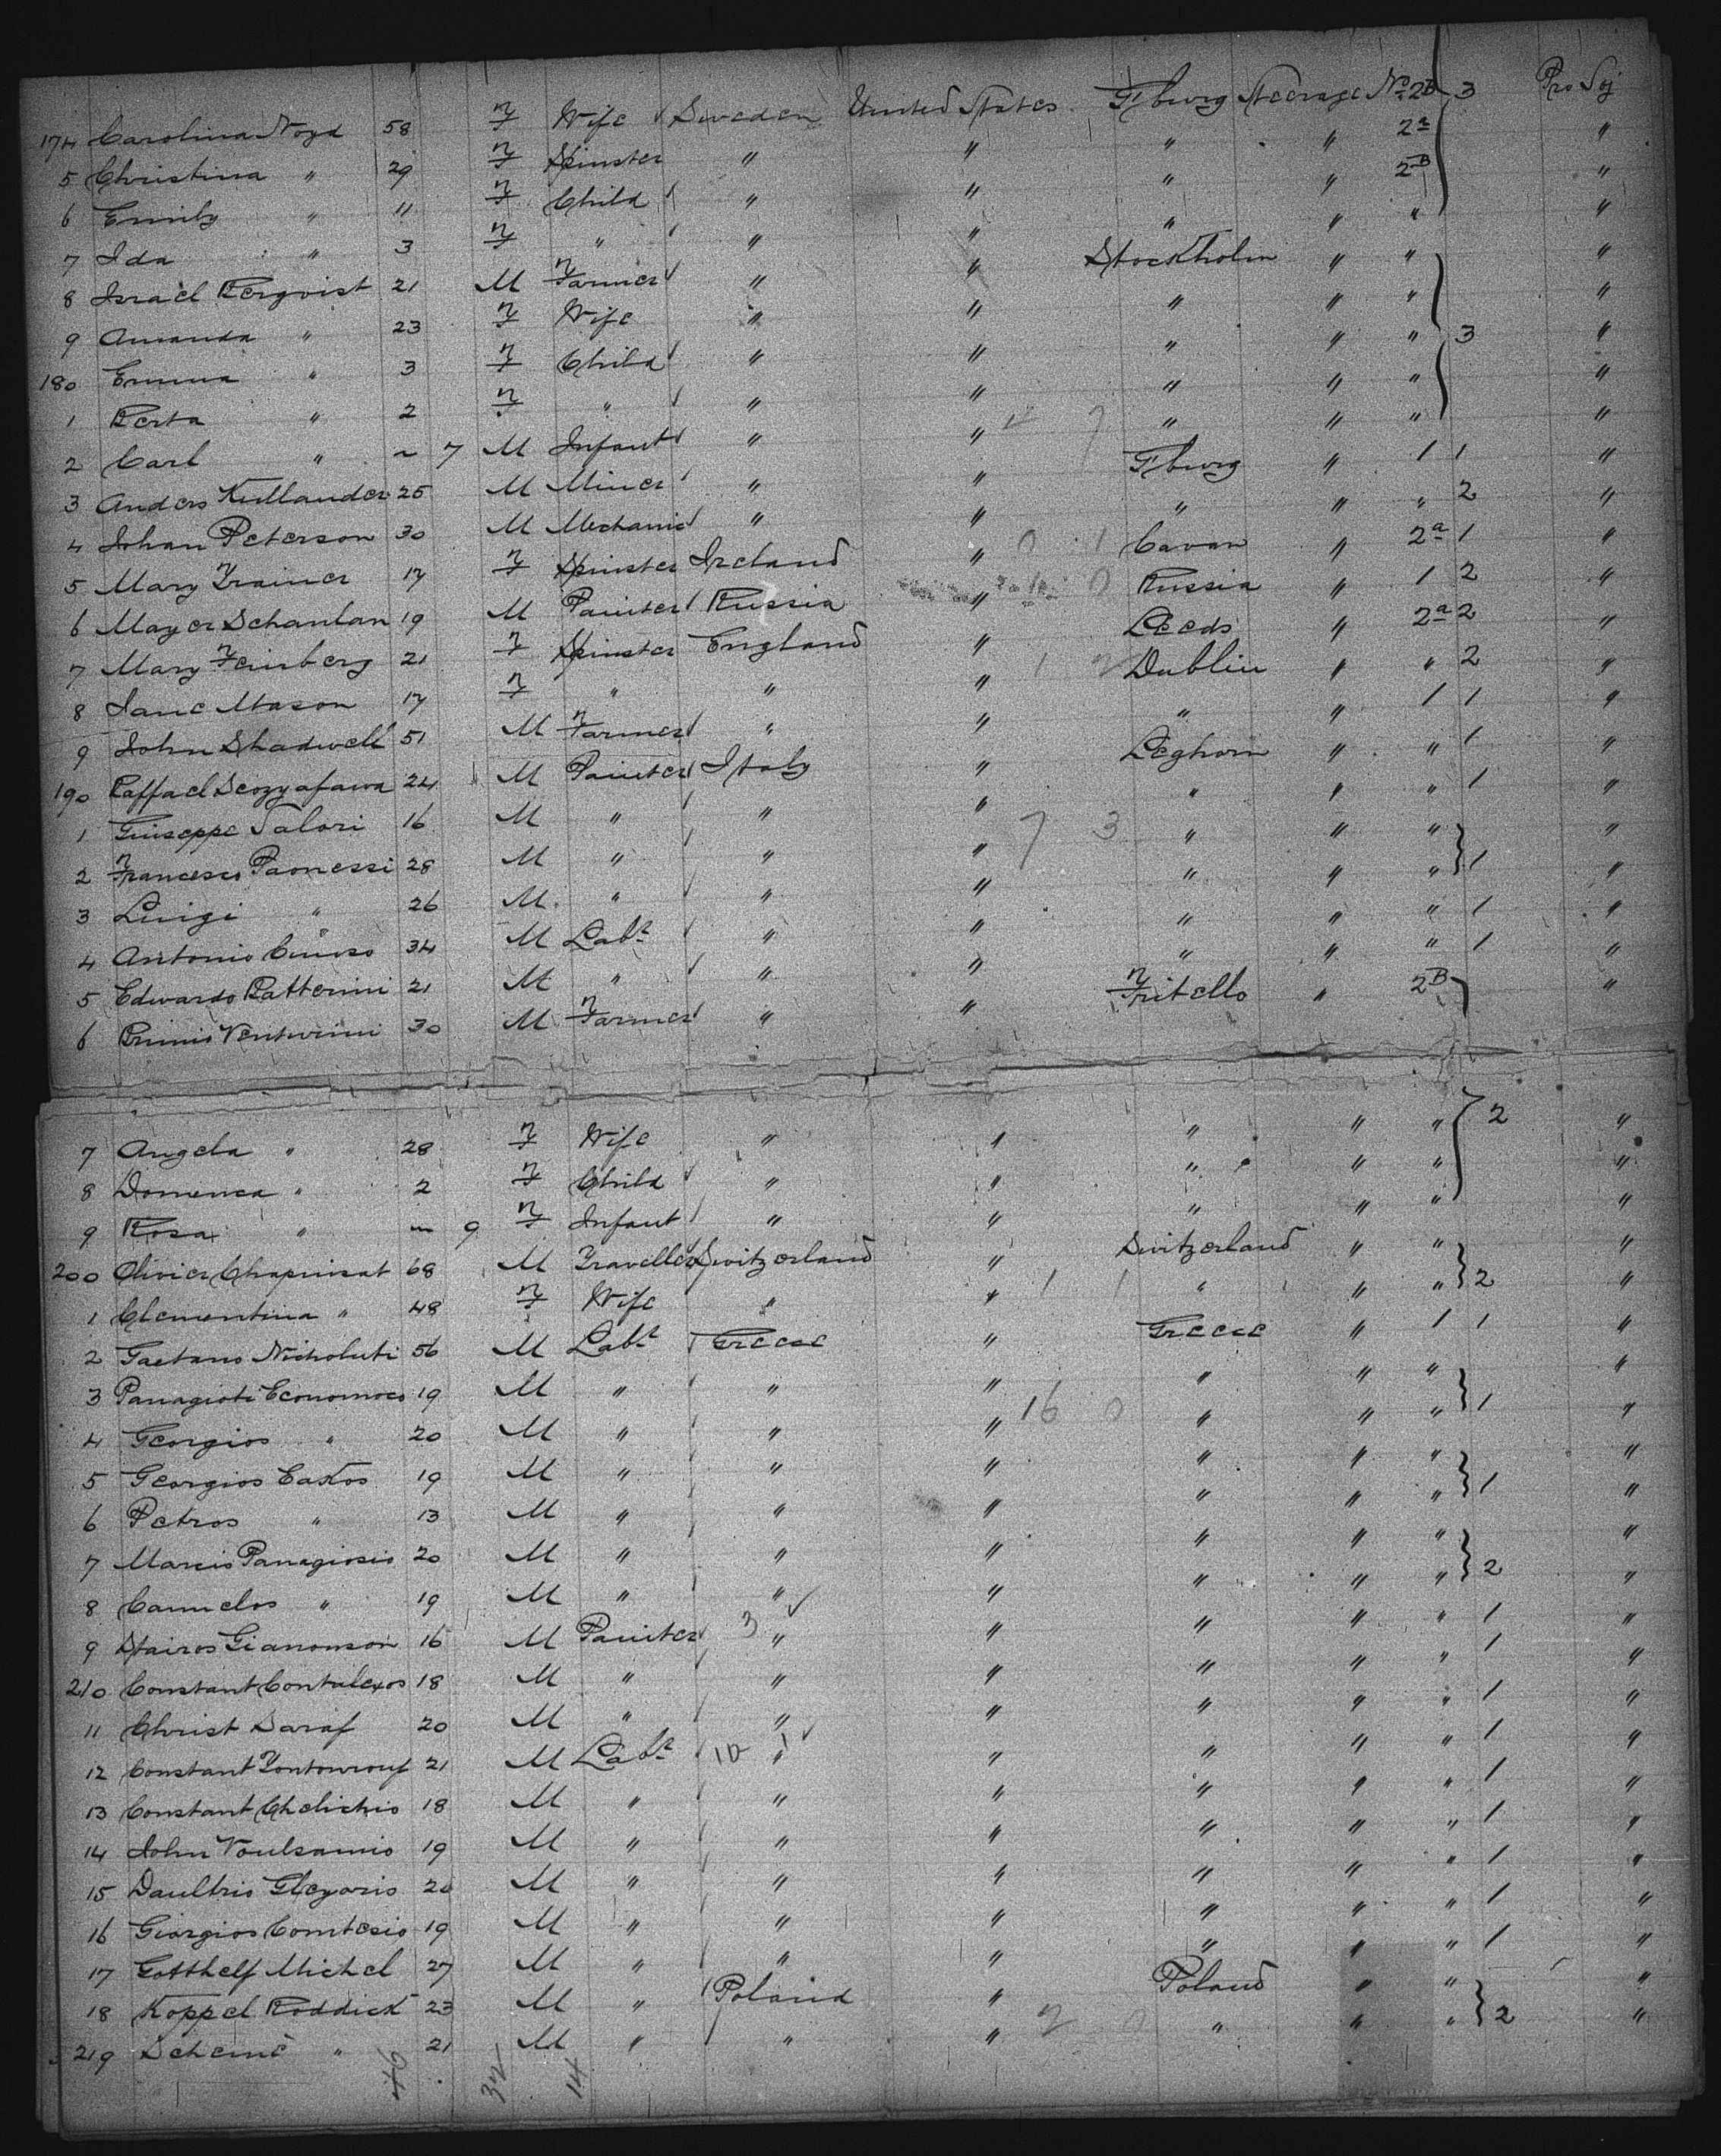 174 Carolina Noyd 58 F Wife Sweden United States Gburg Steerage No 2B 3 Pro Soj
5 Christina " 29 F Spinster " " " " 2a "
6 Emily " 11 F Child " " " " 2B "
7 Ida " 3 F " " " " " " "
8 Israel Bergvist 21 M Farmer " " Stockholm " " "
9 Amanda " 23 F Wife " " " " " "
180 Emma " 3 F Child " " " " " 3 "
1 Berta " 2 F " " " " " " "
2 Carl " ~ 7 M Infant " " " " " "
3 Anders Kullander 25 M Miner " " Gburg " 1 1 "
4 Johan Peterson 30 M Mechanic " " " " " 2 "
5 Mary Trainer 17 F Spinster Ireland " 0 1 Cavan " 2a 1 "
6 Mayer Schanlan 19 M Painter Russia " 0 Russia " 1 2 "
7 Mary Feinberg 21 F Spinster England " Leeds " 2a 2 "
8 Jane Mason 17 F " " " 1 2 Dublin " " 2 "
9 John Shadwell 51 M Farmer " " " " 1 1 "
190 Raffael 24 M Painter Italy " Leghorn " " 1 "
1 Giuseppe Salori 16 M " " " " " " 1 "
2 Francesco Paonessi 28 M " " " 7 3 " " " "
3 Luigi " 26 M " " " " " " 1 "
4 Antonio 34 M Labr " " " " " 1 "
5 Edwardo Batterini 21 M " " " " " " 1 "
6 Primio Venturini 30 M Farmer " " Fritello " 2B "
7 Angela " 28 F Wife " " " " " 2 "
8 Domenica " 2 F Child " " " " " "
9 Rosa " ~ 9 F Infant " " " " " "
200 Olivier Chapuisat 68 M Traveller Switzerland " Switzerland " " "
1 Clementina " 48 F Wife " " 1 1 " " " 2 "
2 Gaetano Nicholuti 56 M Labr Greece " Greece " 1 1 "
3 Panagioti Economoes 19 M " " " " " " "
4 Georgios " 20 M " " " 16 0 " " " 1 "
5 Georgios Caxos 19 M " " " " " " "
6 Petros " 13 M " " " " " " 1 "
7 Marcis Panagiosis 20 M " " " " " " "
8 Camelos " 19 M " " " " " " 2 "
9 Stairos Gianonson 16 M Painter 3 " " " " " 1 "
210 Constant Contalexos 18 M " " " " " " 1 "
11 Christ Saraf 20 M " " " " " " 1 "
12 Constant 21 M Labr 10 1 " " " " " 1 "
13 Constant Chelichio 18 M " " " " " " 1 "
14 John Voulsamis 19 M " " " " " " 1 "
15 Daultris 20 M " " " " " " 1 "
16 Giorgios Comtesio 19 M " " " " " " 1 "
17 Gotthelf Michel 27 M " " " " " " 1 "
18 Koppel Roddick 23 M " Poland " Poland " " "
219 Scheine " 21 M " " " 2 0 " " " 2 "
46 32 14